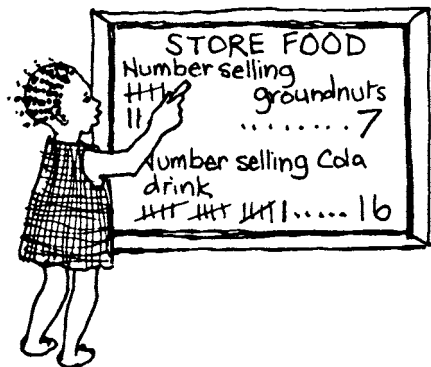 STORE FOOD
Number selling
groundnuts
........7
Number selling Cola
drink
..... 16